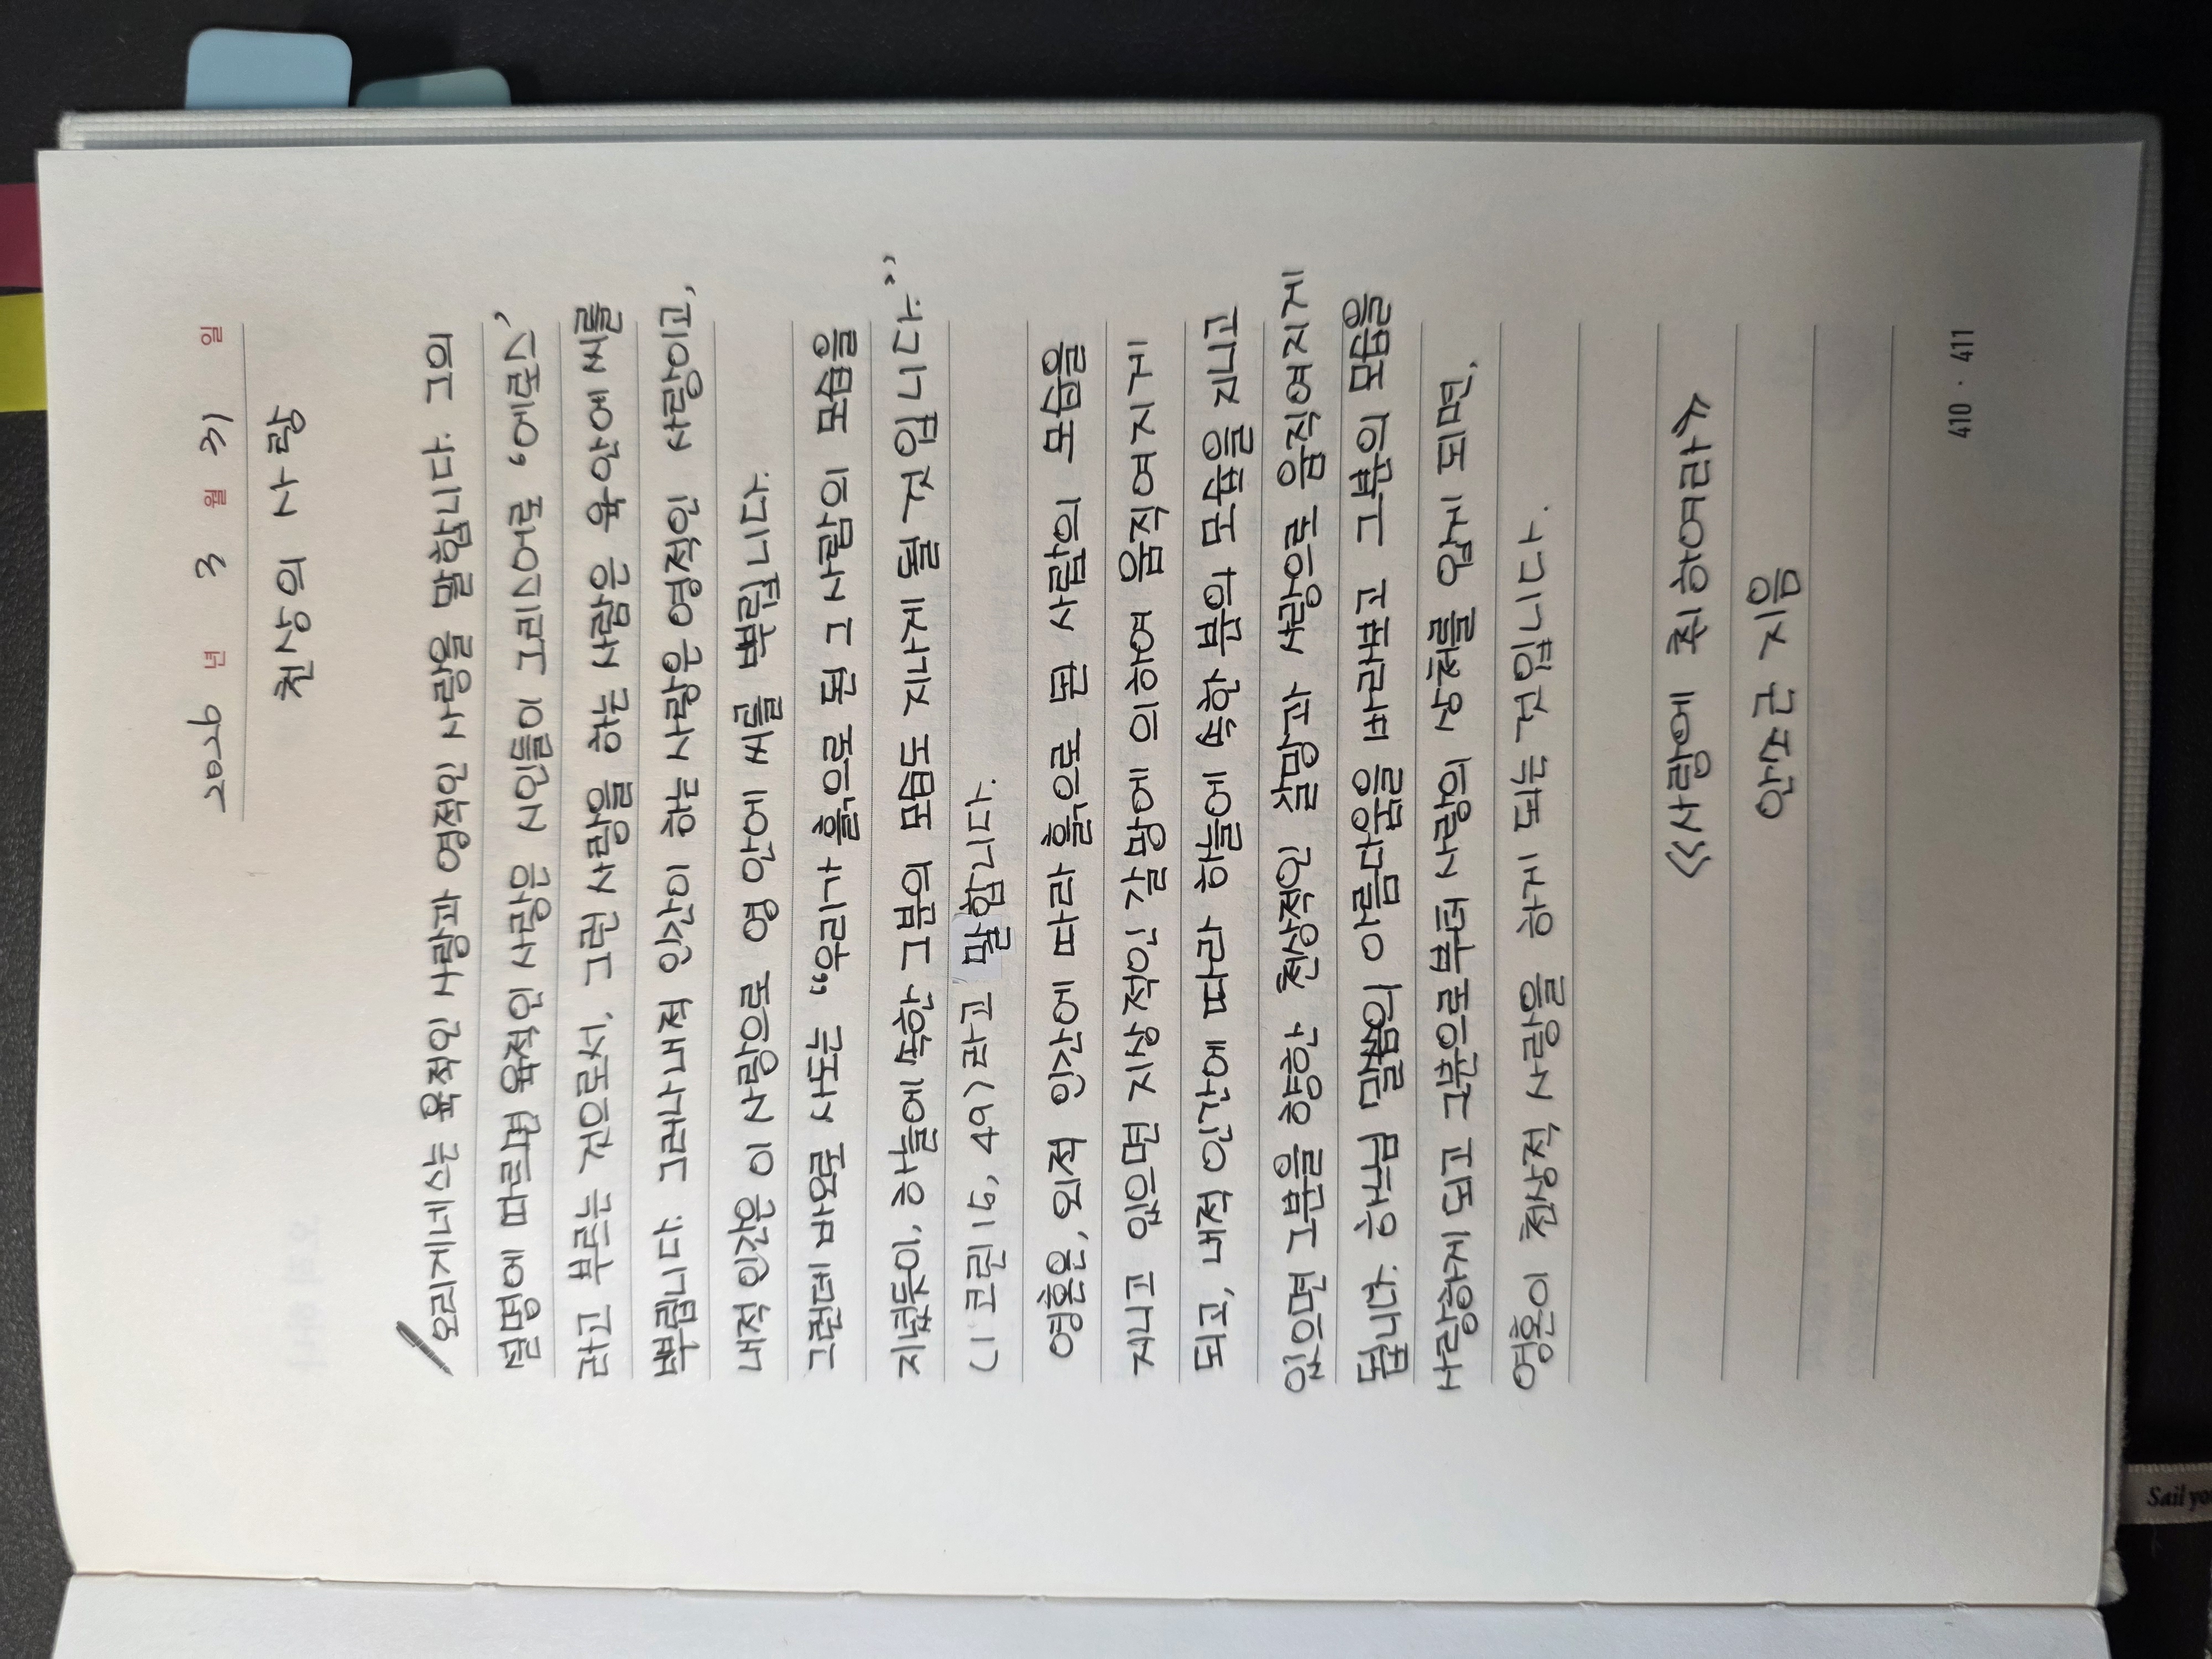 2026 년 3 월 31 일
천상의 사랑
오리게네스는 육적인 사랑과 영적인 사랑을 말합니다. 그의
설명에 따르면 육적인 사랑은 시인들이 그리스어로 '에로스'
라고 부르는 것으로서, 그런 사랑을 하는 사람은 육 안에 씨를
뿌립니다. 그러나 내적 인간이 하는 사랑은 영적인 사랑이고,
내적 인간은 이 사랑으로 영 안에 씨를 뿌립니다.
그런데 바오로 사도는 "우리가 흙으로 된 그 사람의 모습을
지녔듯이, 하늘에 속한 그분의 모습도 지니게 될 것입니다."
(1코린 15, 49)라고 말합니다.
영혼은, 외적 인간에 따라 흙으로 된 사람의 모습을
지니고 있으면 지상적인 갈망에 의하여 움직여지게
되고, 내적 인간에 따라 하늘에 속한 분의 모습을 지니고
있으면 그분을 향한 천상적인 갈망과 사랑으로 움직여지게
됩니다. 하느님 말씀의 아름다움을 바라보고 그분의 모습을
사랑하게 되고 그분으로부터 사랑의 상처를 입게 되면,
영혼이 천상적 사랑을 하게 되는 것입니다.
《사랑에 취하여라》
안소근 지음
410 · 411
Sail yo